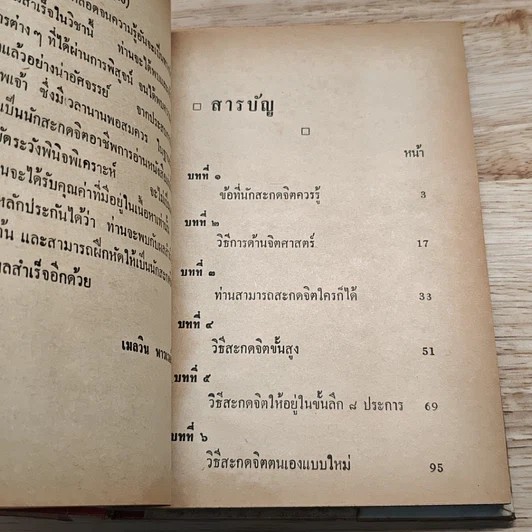 สำเร็จในวิชานี้
การต่างๆ ที่ได้ผ่านการพิสูจน์
แล้วอย่างน่าอัศจรรย์
ซึ่งมีเวลานานพอสมควร
เป็นนักสะกดจิตอาชีพการอ่านหนังสือ
ระวังพินิจพิเคราะห์
จะได้รับคุณค่าที่มีอยู่ในเนื้อหาเหล่านี้
หลักประกันได้ว่า ท่านจะพบกับ
และสามารถฝึกหัดให้เป็นนักสะกด
ผลสำเร็จอีกด้วย
เมลวิน
สารบัญ
หน้า
บทที่ ๑
ข้อที่นักสะกดจิตควรรู้ 3
บทที่ ๒
วิธีการด้านจิตศาสตร์ 17
บทที่ ๓
ท่านสามารถสะกดจิตใครก็ได้ 33
บทที่ ๔
วิธีสะกดจิตขั้นสูง 51
บทที่ ๕
วิธีสะกดจิตให้อยู่ในขั้นลึก ๘ ประการ 69
บทที่ ๖
วิธีสะกดจิตตนเองแบบใหม่ 95